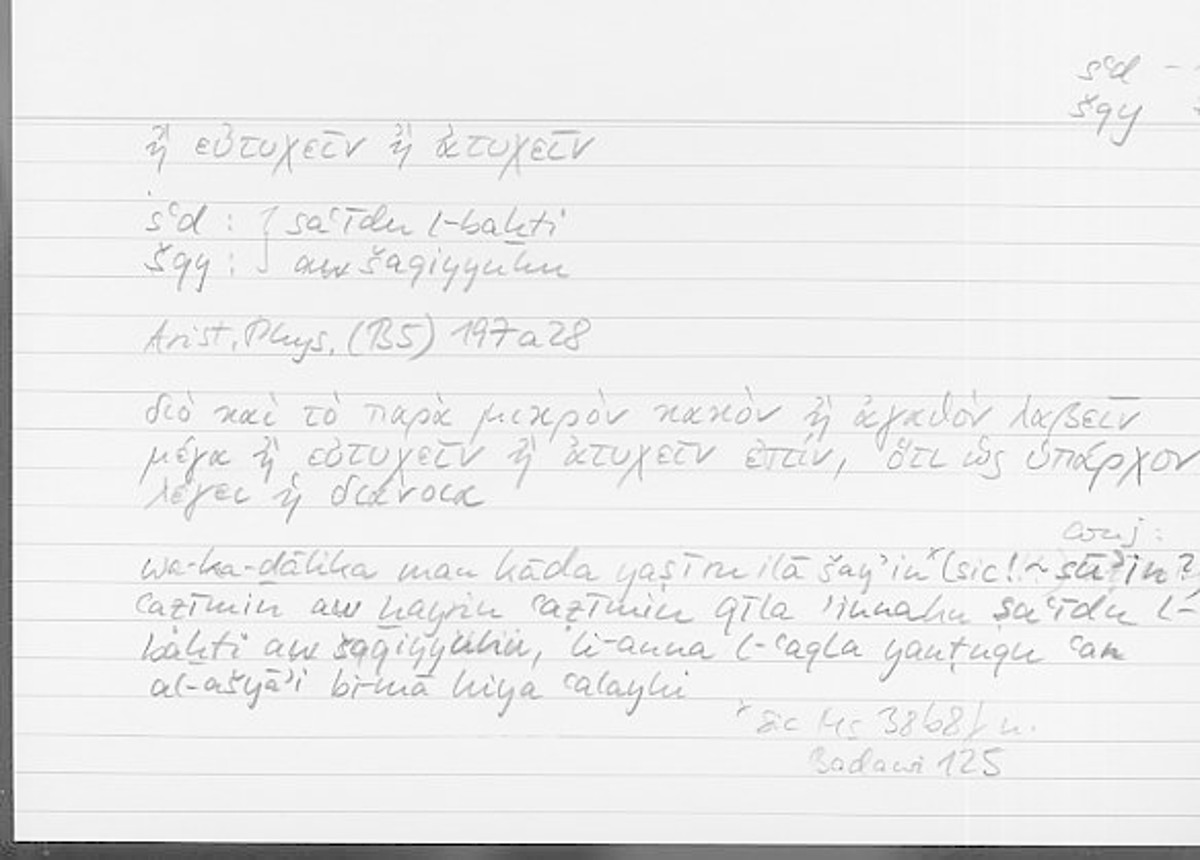 sʿd –
šqy
ἢ εὐτυχεῖν ἢ ἀτυχεῖν
sʿd : saʿīdu l-baḫti
šqy : aw šaqiyyuhu
Arist. Phys. (B5) 197a28
διὸ καὶ τὸ παρὰ μικρὸν κακὸν ἢ ἀγαθὸν λαβεῖν
μέγα ἢ εὐτυχεῖν ἢ ἀτυχεῖν ἐστίν, ὅτι ὡς ὑπάρχον
λέγει ἡ διάνοια
conj:
wa-ka-ḏālika man kāda yaṣīru ilā šayʾinˣ (sic! ~ sūʾin?
ʿaẓīmin aw ḫayrin ʿaẓīmin qīla ʾinnahu saʿīdu l-
baḫti aw šaqiyyuhu, li-anna l-ʿaqla yanṭuqu ʿan
al-ašyāʾi bi-mā hiya ʿalayhi
ˣ sic Ms 38b8 u.
Badawi 125